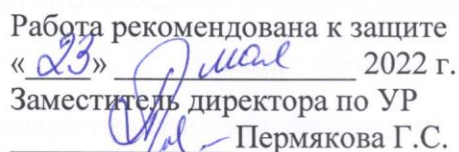 Работа рекомендована к защите
« 23 » мая 2022 г.
Заместитель директора по УР
Пермякова Г.С.